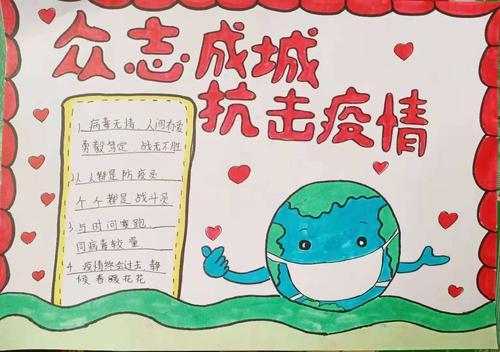 众志成城
抗击疫情
1、病毒无情 人间有爱
勇毅笃定 战无不胜
2、人人都是防疫
个个都是战斗员
3、与时间赛跑
同病毒较量
4、疫情终会过去 静
候春暖花花